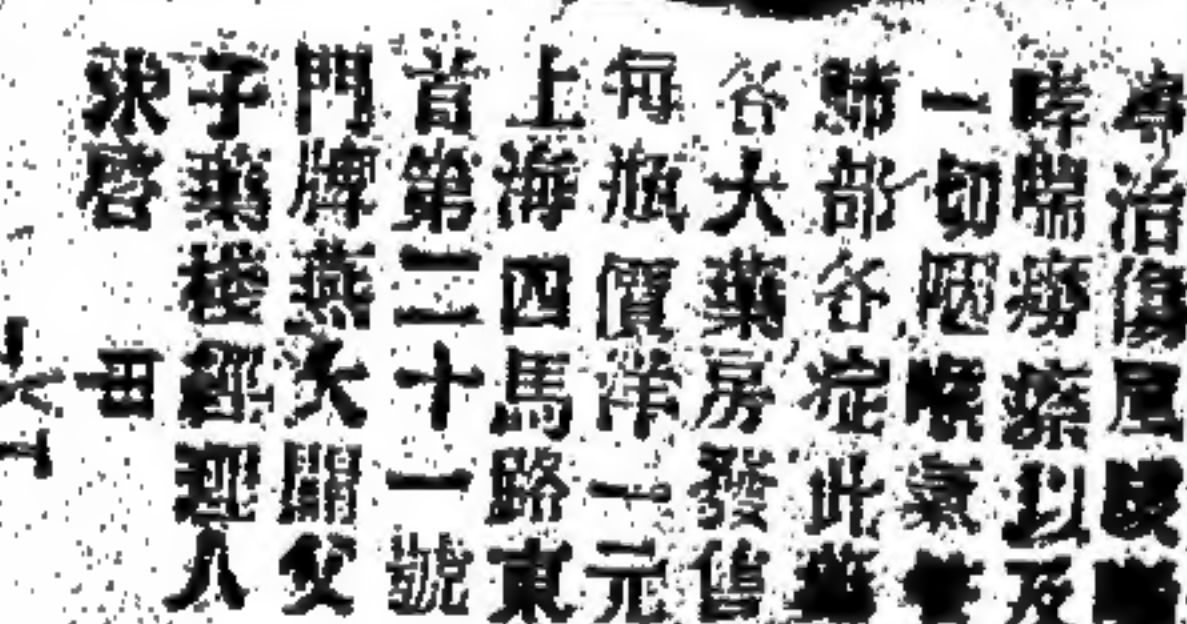 專治傷風咳嗽
哮喘癆瘵以及
一切咽喉氣管
肺部各症此藥
各大藥房發售
每瓶價洋一元
上海四馬路東
首第二十一號
門牌燕大開父
子藥棧經理八
狀啓